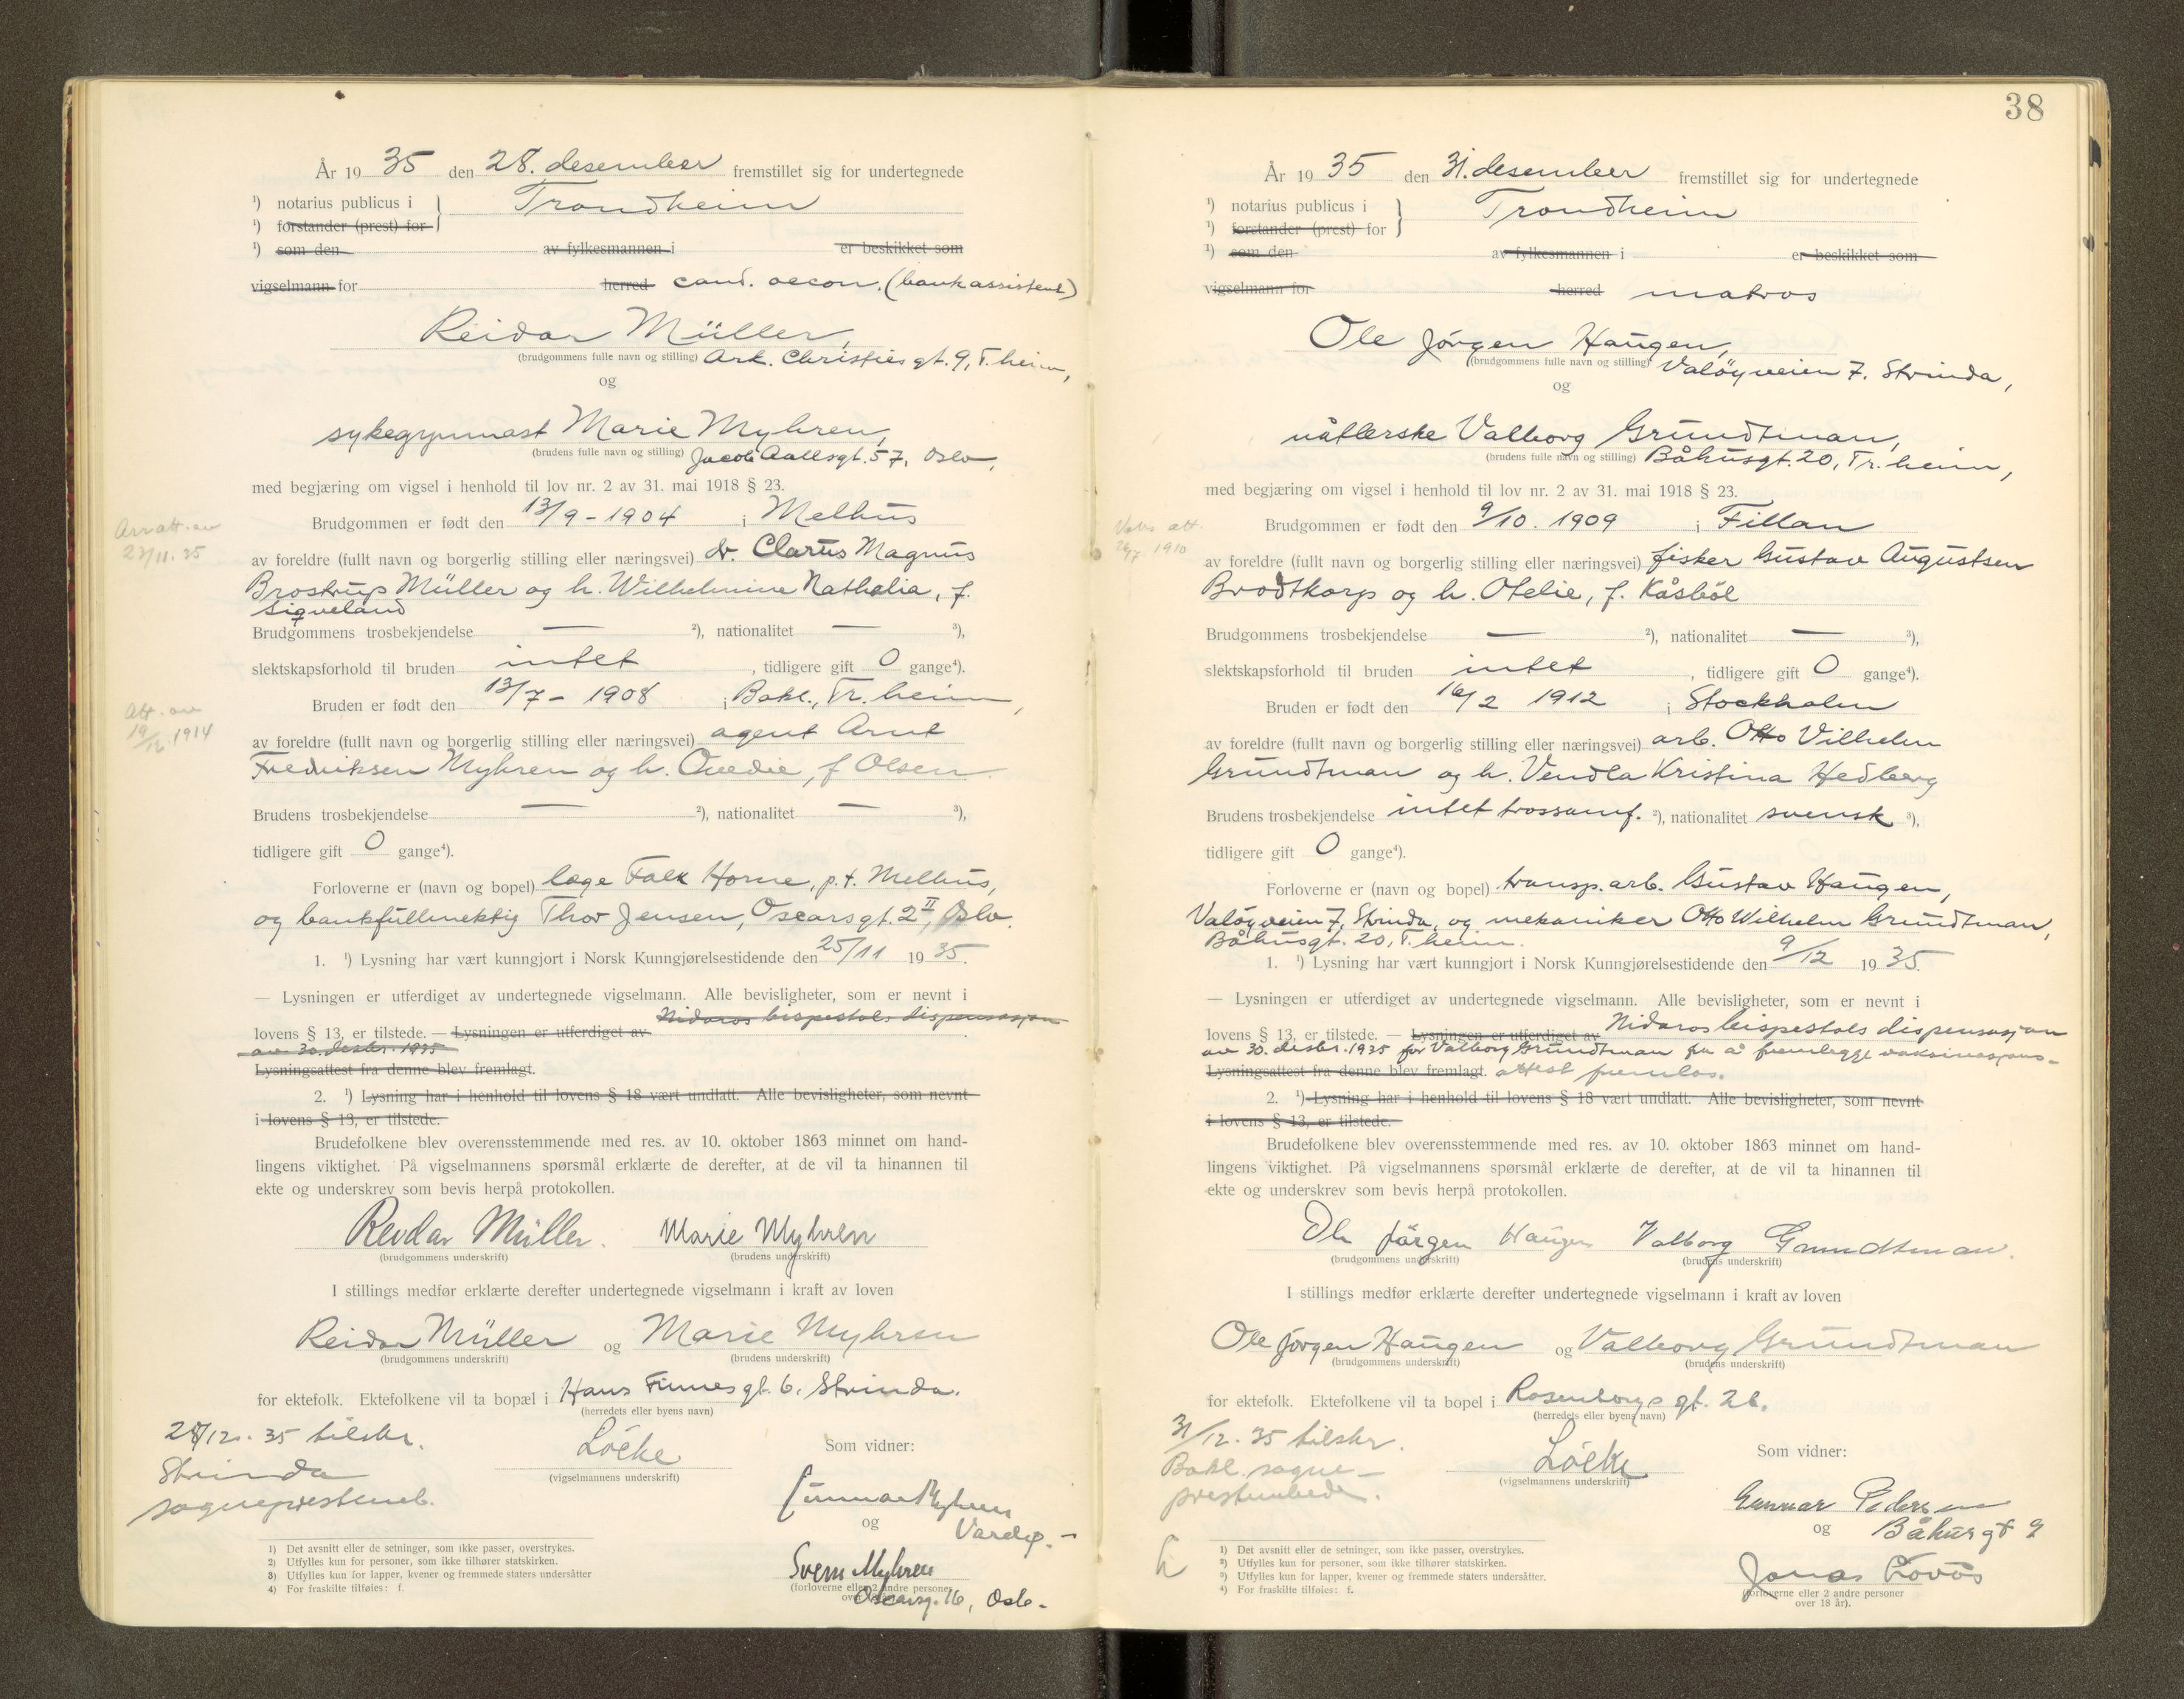 År 1935 den 28. desember fremstillet sig for undertegnede
¹) notarius publicus i } Trondheim
¹) forstander (prest) for
¹) som den av fylkesmannen i er beskikket som
vigselmann for herred cand. oecon. (bankassistent)
Reidar Müller,
(brudgommens fulle navn og stilling) Ark. Christies gt. 9, T.heim,
og
sykegymnast Marie Myhren,
(brudens fulle navn og stilling) Jacob Aallsgt. 57, Oslo,
med begjæring om vigsel i henhold til lov nr. 2 av 31. mai 1918 § 23.
Brudgommen er født den 13/9 - 1904 i Melhus
av foreldre (fullt navn og borgerlig stilling eller næringsvei) dr. Clarus Magnus
Brostrup Müller og h. Wilhelmine Nathalia, f.
Siqveland
Brudgommens trosbekjendelse — ²), nationalitet — ³),
slektskapsforhold til bruden intet, tidligere gift 0 gange⁴).
Bruden er født den 13/7 - 1908 i Bakl., Tr.heim,
av foreldre (fullt navn og borgerlig stilling eller næringsvei) agent Arnt
Fredriksen Myhren og h. Ovedie, f Olsen.
Brudens trosbekjendelse — ²), nationalitet — ³),
tidligere gift 0 gange⁴).
Forloverne er (navn og bopel) læge Falk Horne, p.t. Melhus,
og bankfullmektig Thor Jensen, Oscarsgt. 2 II, Oslo.
1. ¹) Lysning har vært kunngjort i Norsk Kunngjørelsestidende den 25/11 1935.
— Lysningen er utferdiget av undertegnede vigselmann. Alle bevisligheter, som er nevnt i
Nidaros bispestols dispensasjon
lovens § 13, er tilstede. — Lysningen er utferdiget av
av 30. desbr. 1935
Lysningsattest fra denne blev fremlagt.
2. ¹) Lysning har i henhold til lovens § 18 vært undlatt. Alle bevisligheter, som nevnt
i lovens § 13, er tilstede.
Brudefolkene blev overensstemmende med res. av 10. oktober 1863 minnet om hand-
lingens viktighet. På vigselmannens spørsmål erklærte de derefter, at de vil ta hinannen til
ekte og underskrev som bevis herpå protokollen.
Reidar Müller. Marie Myhren
(brudgommens underskrift) (brudens underskrift)
I stillings medfør erklærte derefter undertegnede vigselmann i kraft av loven
Reidar Müller og Marie Myhren
(brudgommens underskrift) (brudens underskrift)
for ektefolk. Ektefolkene vil ta bopæl i Hans Finnes gt. 6, Strinda.
(herredets eller byens navn)
28/12. 35 tilskr.
Strinda
sogneprestemb.
Löcke
(vigselmannens underskrift)
Som vidner:
Gunnar Myhren
og Vardø.-
Svein Myhren
(forloverne eller 2 andre personer
Oscarsg. 16, Oslo-
1) Det avsnitt eller de setninger, som ikke passer, overstrykes.
2) Utfylles kun for personer, som ikke tilhører statskirken.
3) Utfylles kun for lapper, kvener og fremmede staters undersåtter
4) For fraskilte tilføies: f.
att. av
23/11. 35
Att. av
19/12 1914
38
År 1935 den 31. desember fremstillet sig for undertegnede
¹) notarius publicus i } Trondheim
¹) forstander (prest) for
¹) som den av fylkesmannen i er beskikket som
vigselmann for herred matros
Ole Jörgen Haugen,
(brudgommens fulle navn og stilling) Valöyveien 7, Strinda,
og
nåtlerske Valborg Grundtman,
(brudens fulle navn og stilling) Båhusgt. 20, Tr.heim,
med begjæring om vigsel i henhold til lov nr. 2 av 31. mai 1918 § 23.
Brudgommen er født den 9/10. 1909 i Fillan
av foreldre (fullt navn og borgerlig stilling eller næringsvei) fisker Gustav Augustsen
Brodtkorp og h. Otelie, f. Kåsböl
Brudgommens trosbekjendelse — ²), nationalitet — ³),
slektskapsforhold til bruden intet, tidligere gift 0 gange⁴).
Bruden er født den 16/2 1912 i Stockholm
av foreldre (fullt navn og borgerlig stilling eller næringsvei) arb. Otto Vilhelm
Grundtman og h. Vendla Kristina Hedberg
Brudens trosbekjendelse intet trossamf. ²), nationalitet svensk ³),
tidligere gift 0 gange⁴).
Forloverne er (navn og bopel) transp.arb. Gustav Haugen,
Valöyveien 7, Strinda, og mekaniker Otto Wilhelm Grundtman,
Båhusgt. 20, T.heim.
1. ¹) Lysning har vært kunngjort i Norsk Kunngjørelsestidende den 9/12 1935.
— Lysningen er utferdiget av undertegnede vigselmann. Alle bevisligheter, som er nevnt i
lovens § 13, er tilstede. — Lysningen er utferdiget av Nidaros bispestols dispensasjon
av 30. desbr. 1935 for Valborg Grundtman fra å fremlegge vaksinasjons-
Lysningsattest fra denne blev fremlagt. attest fremlas.
2. ¹) Lysning har i henhold til lovens § 18 vært undlatt. Alle bevisligheter, som nevnt
i lovens § 13, er tilstede.
Brudefolkene blev overensstemmende med res. av 10. oktober 1863 minnet om hand-
lingens viktighet. På vigselmannens spørsmål erklærte de derefter, at de vil ta hinannen til
ekte og underskrev som bevis herpå protokollen.
Ole Jörgen Haugen Valborg Grundtman.
(brudgommens underskrift) (brudens underskrift)
I stillings medfør erklærte derefter undertegnede vigselmann i kraft av loven
Ole Jörgen Haugen og Valborg Grundtman
(brudgommens underskrift) (brudens underskrift)
for ektefolk. Ektefolkene vil ta bopel i Rosenborgs gt. 26.
(herredets eller byens navn)
31/12. 35 tilskr.
Bakl. sogne-
prestembede.
Löcke
(vigselmannens underskrift)
Som vidner:
Gunnar Pedersen
og Båhusgt 9
Jonas Lovås
(forloverne eller 2 andre personer
over 18 år).
1) Det avsnitt eller de setninger, som ikke passer, overstrykes.
2) Utfylles kun for personer, som ikke tilhører statskirken.
3) Utfylles kun for lapper, kvener og fremmede staters undersåtter.
4) For fraskilte tilføies: f.
att.
1910